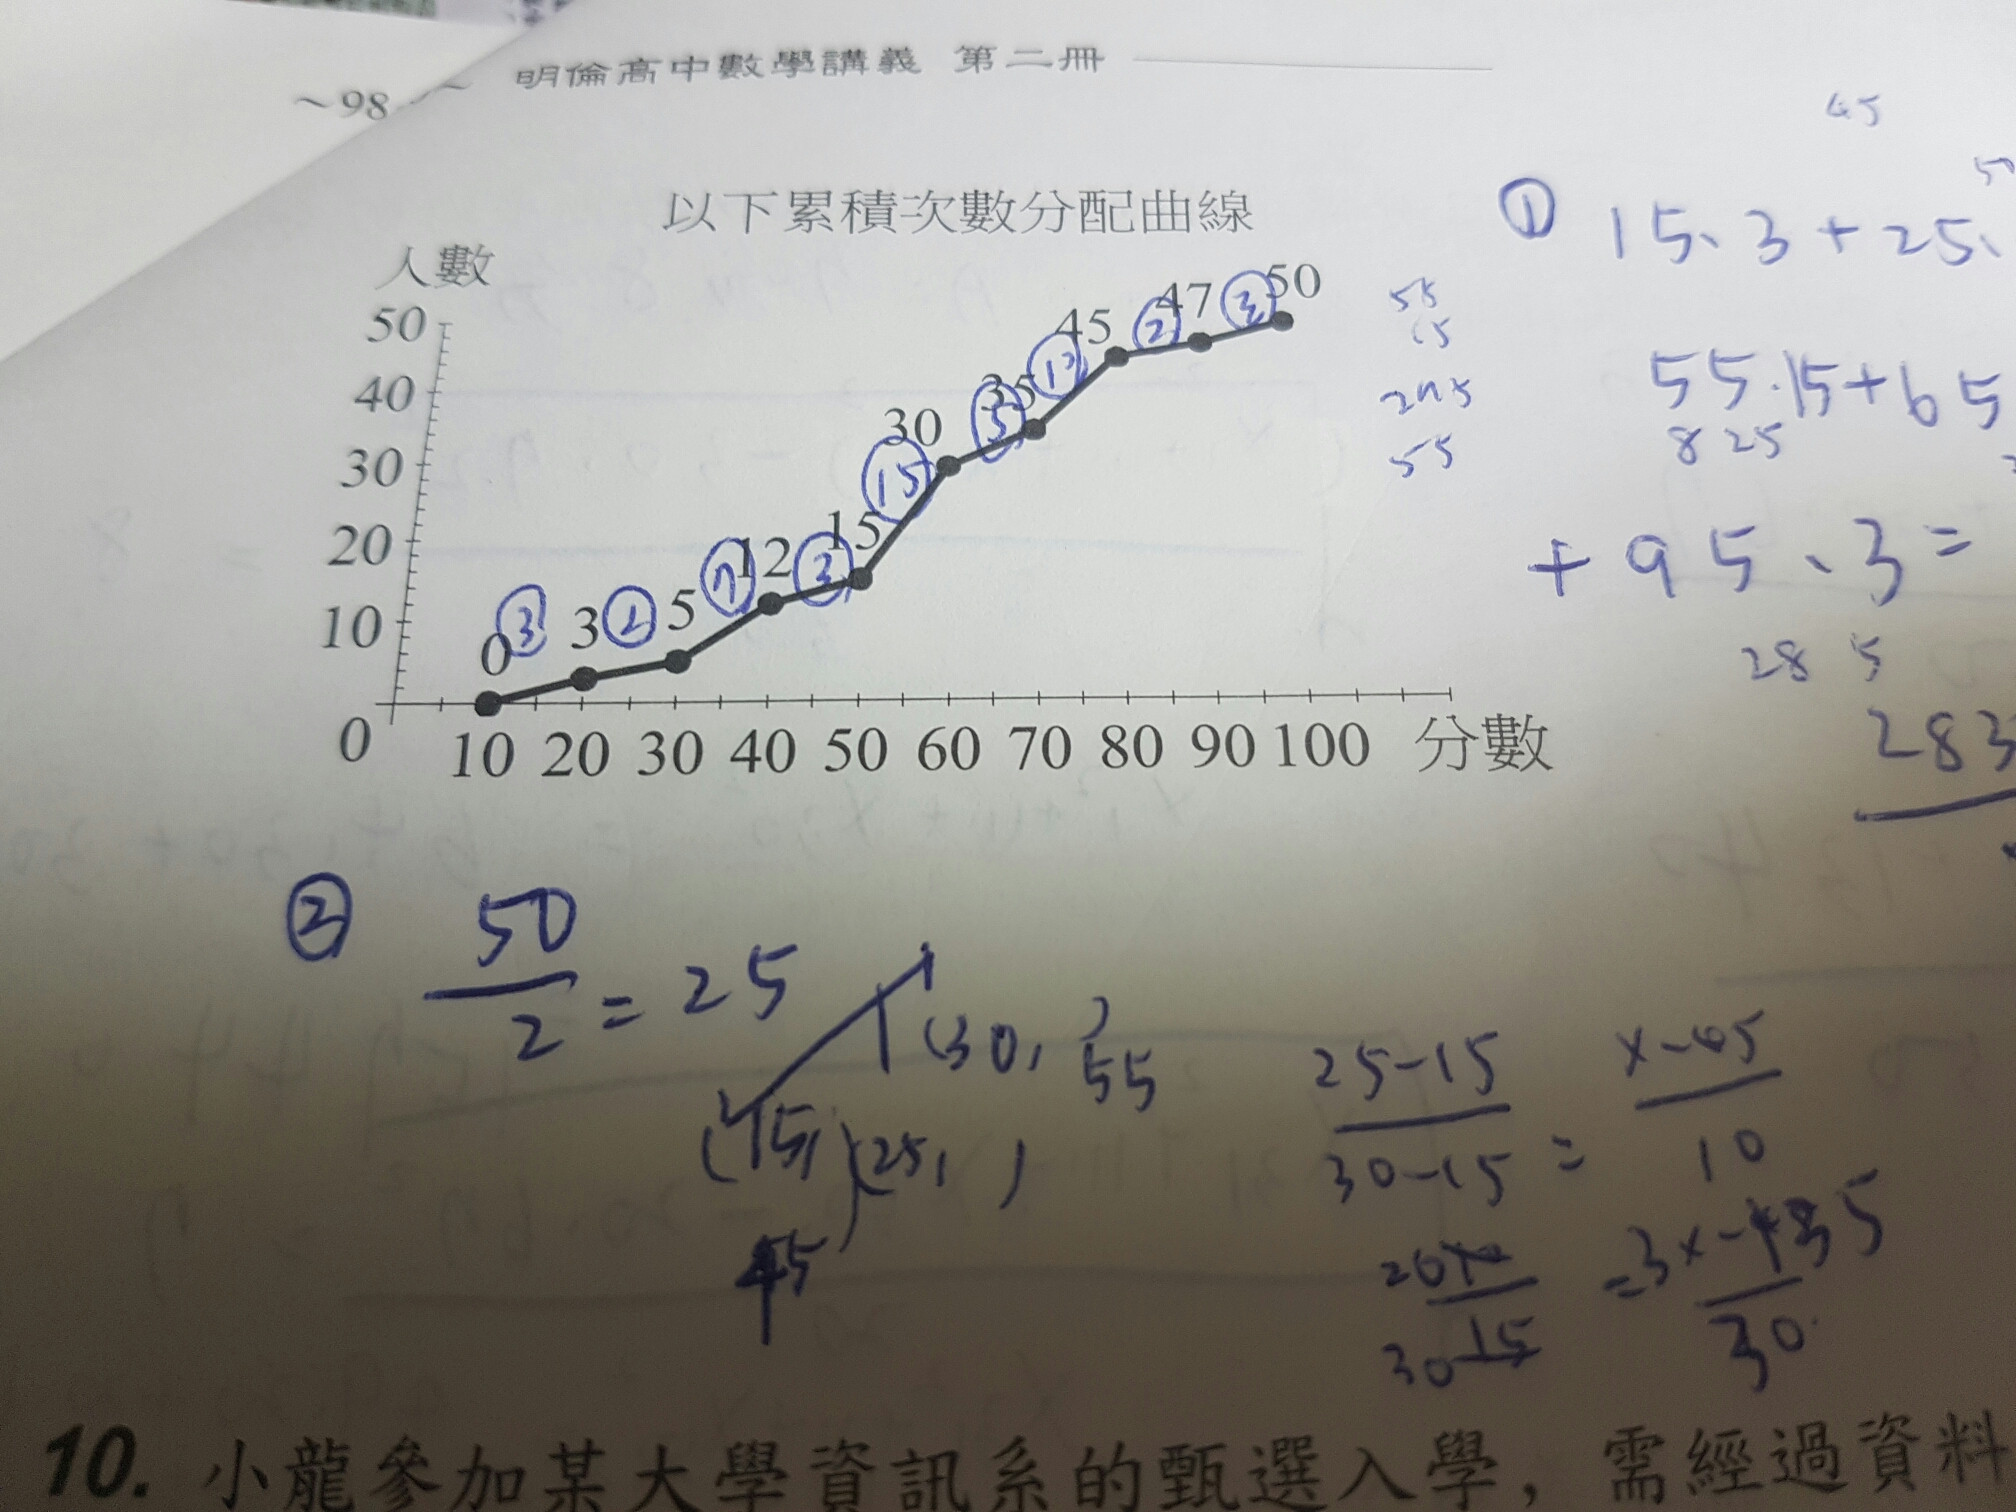 ~98
明倫高中數學講義 第二冊
45
50
以下累積次數分配曲線
① 15、3+25、
人數
50
40
30
20
10
0
0 3 5 12 15 30 35 45 47 50
③ ② ⑦ ③ ⑮ ⑤ ② ③
10 20 30 40 50 60 70 80 90 100 分數
55
15
55
55·15+65
825
+95、3=
28 5
283
② 50/2 = 25
(30, )
55
(15, ) (25, )
45
25-15/30-15 = x-45/10
30
10. 小龍參加某大學資訊系的甄選入學，需經過資料